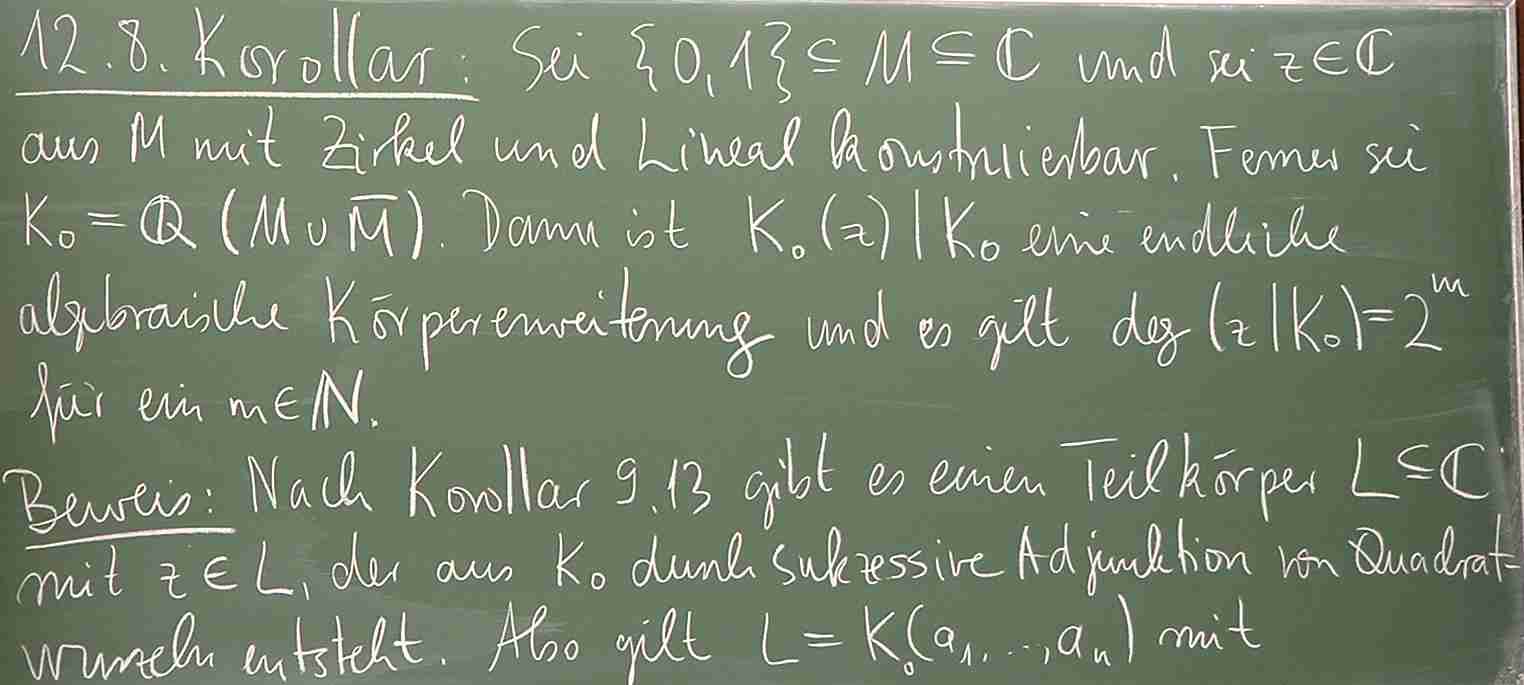 12.8. Korollar: Sei {0,1} ⊆ M ⊆ ℂ und sei z ∈ ℂ
aus M mit Zirkel und Lineal konstruierbar. Ferner sei
K₀ = ℚ (M ∪ M̅). Dann ist K₀(z) | K₀ eine endliche
algebraische Körpererweiterung und es gilt deg (z | K₀) = 2ᵐ
für ein m ∈ ℕ.
Beweis: Nach Korollar 9.13 gibt es einen Teilkörper L ⊆ ℂ
mit z ∈ L, der aus K₀ durch sukzessive Adjunktion von Quadrat-
wurzeln entsteht. Also gilt L = K₀(a₁, ..., aₙ) mit